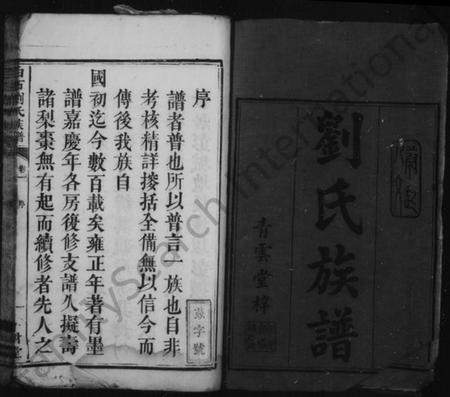 劉氏族譜
青雲堂梓
序
譜者普也所以普言一族也自非
考核精詳搜括全備無以信今而
傳後我族自
國初迄今數百載矣雍正年著有墨
譜嘉慶年各房後修支譜久擬壽
諸梨棗無有起而續修者先人之
字號
劉氏族譜
卷
序
MySearch International